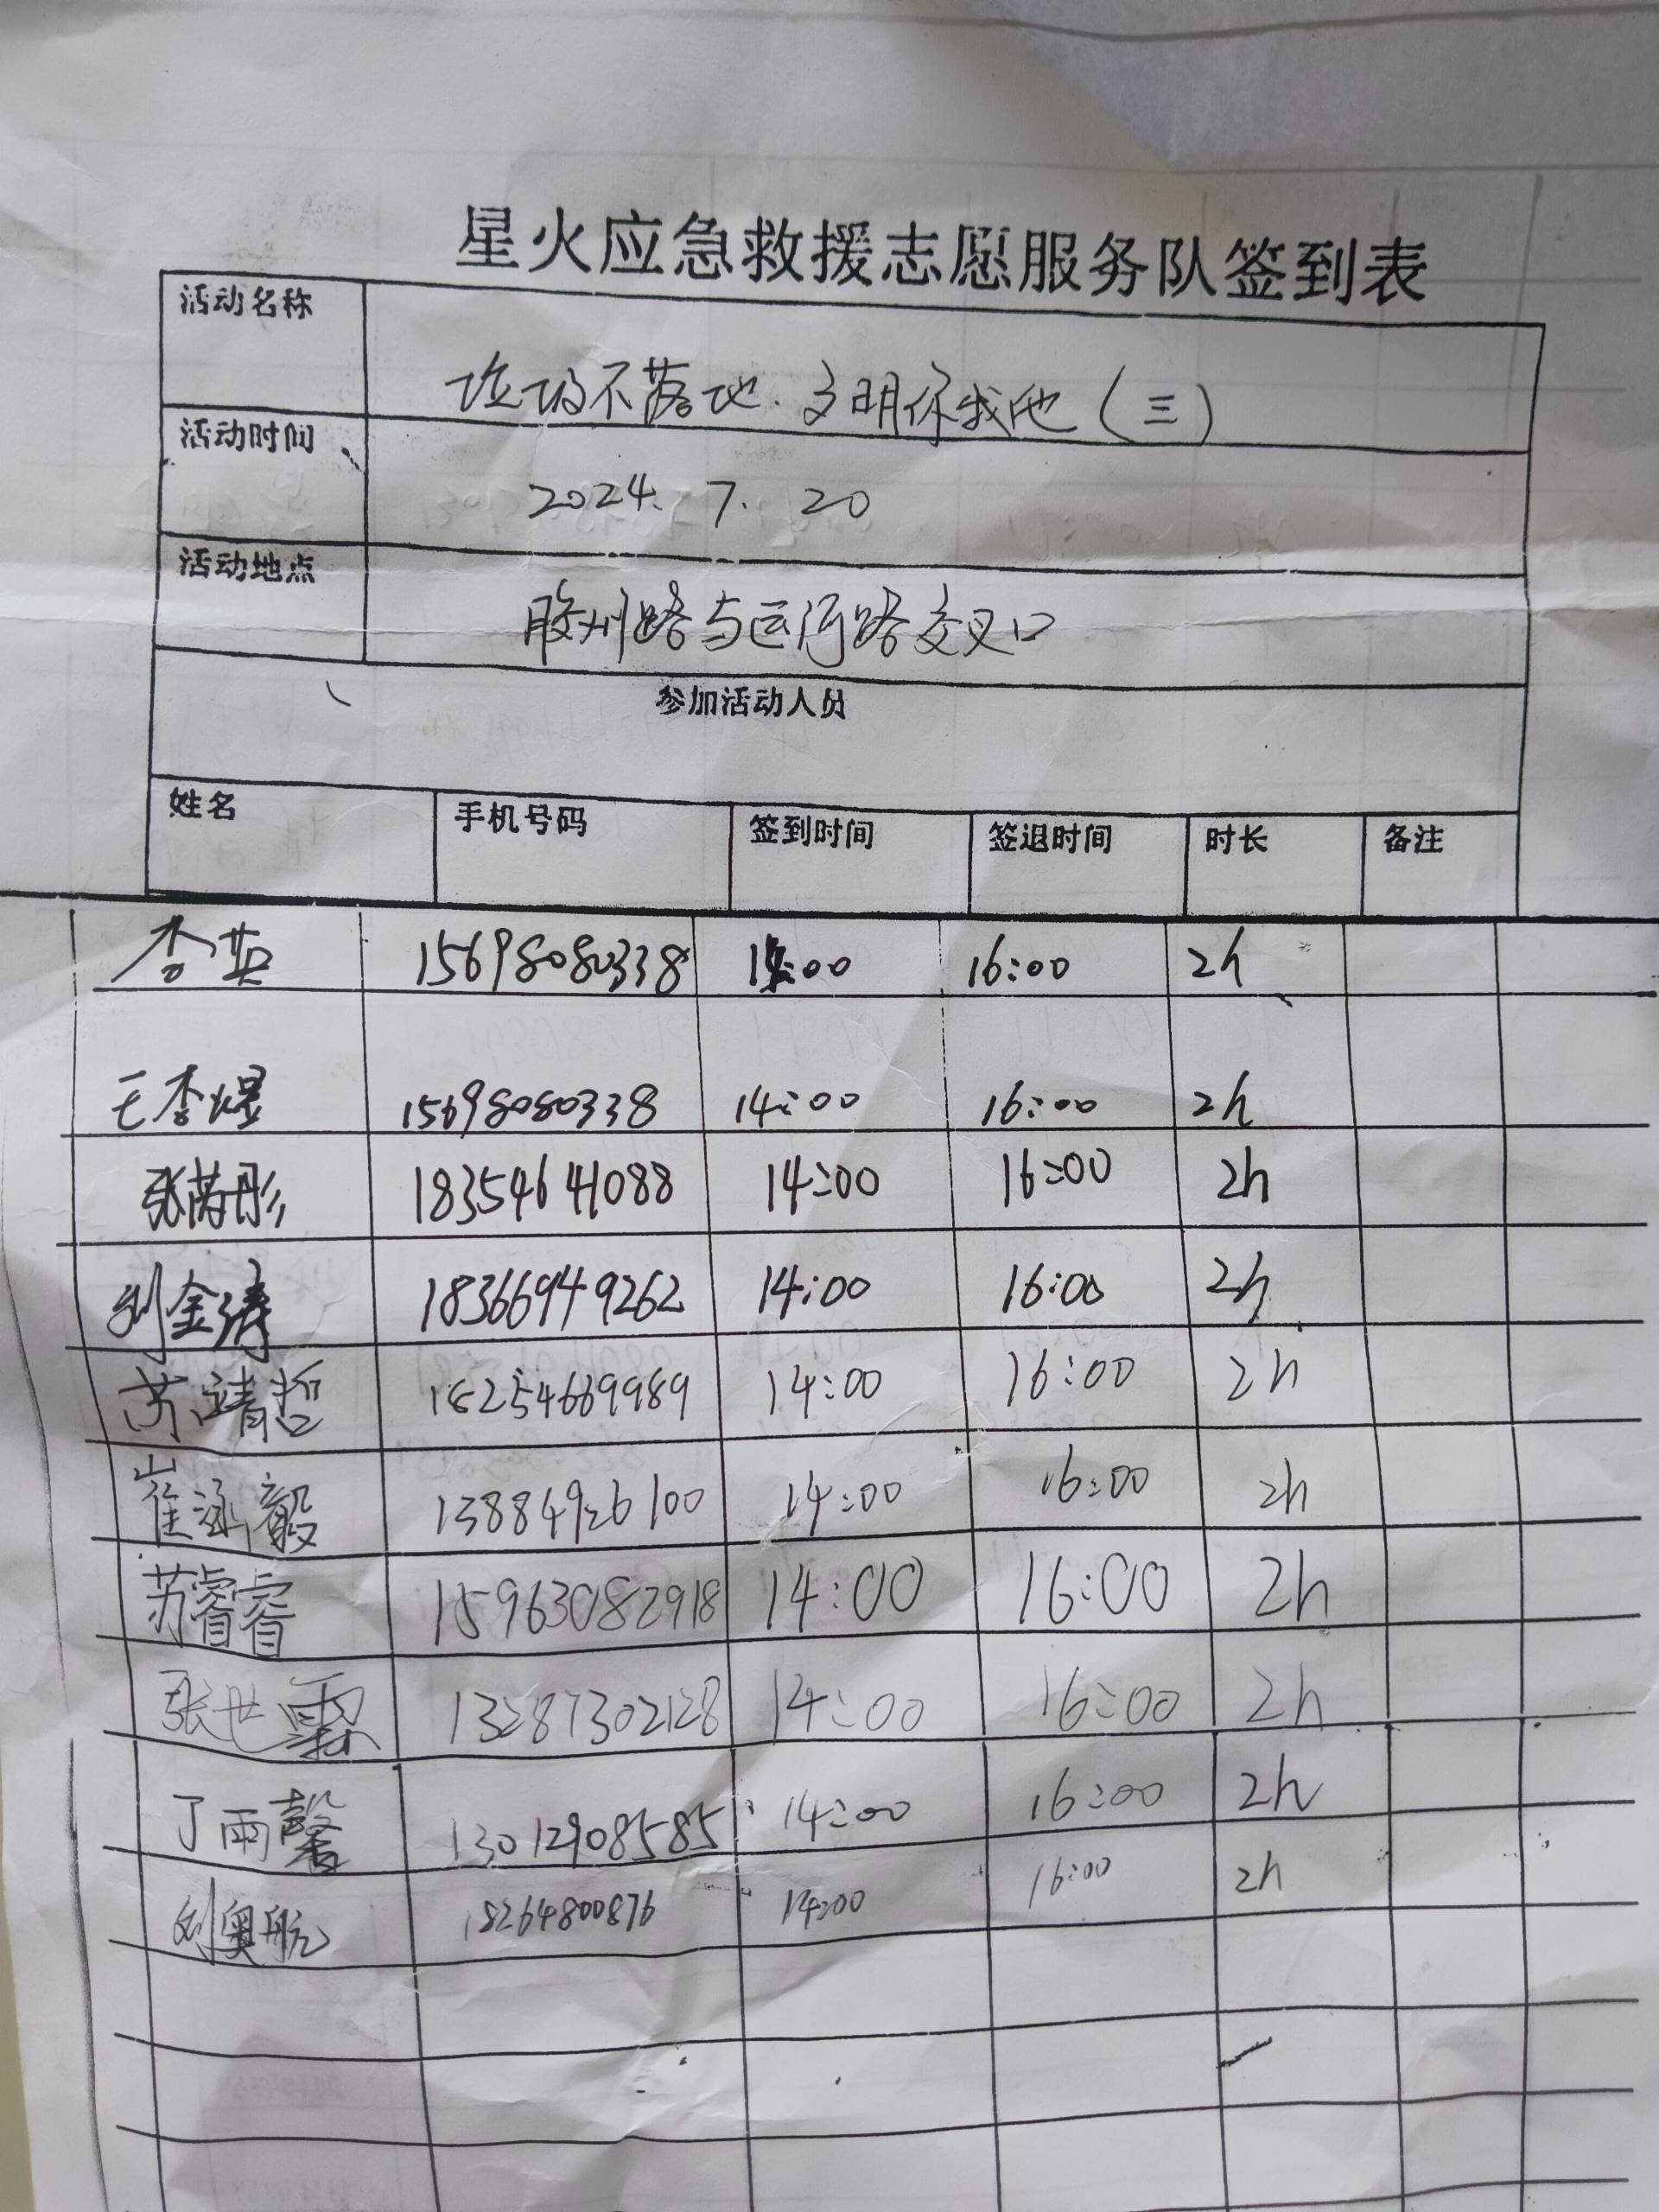 星火应急救援志愿服务队签到表
活动名称 垃圾不落地.文明你我他(三)
活动时间 2024.7.20
活动地点 胶州路与运河路交叉口
参加活动人员
姓名 手机号码 签到时间 签退时间 时长 备注
李英 15698080338 14:00 16:00 2h
王李煜 15698080338 14:00 16:00 2h
张芮彤 18354641088 14:00 16:00 2h
刘金涛 18366949262 14:00 16:00 2h
苏靖哲 18254669989 14:00 16:00 2h
崔泳毅 13884926100 14:00 16:00 2h
苏睿睿 15963082918 14:00 16:00 2h
张世霖 13287302128 14:00 16:00 2h
丁雨馨 13012908585 14:00 16:00 2h
刘奥航 18264800876 14:00 16:00 2h